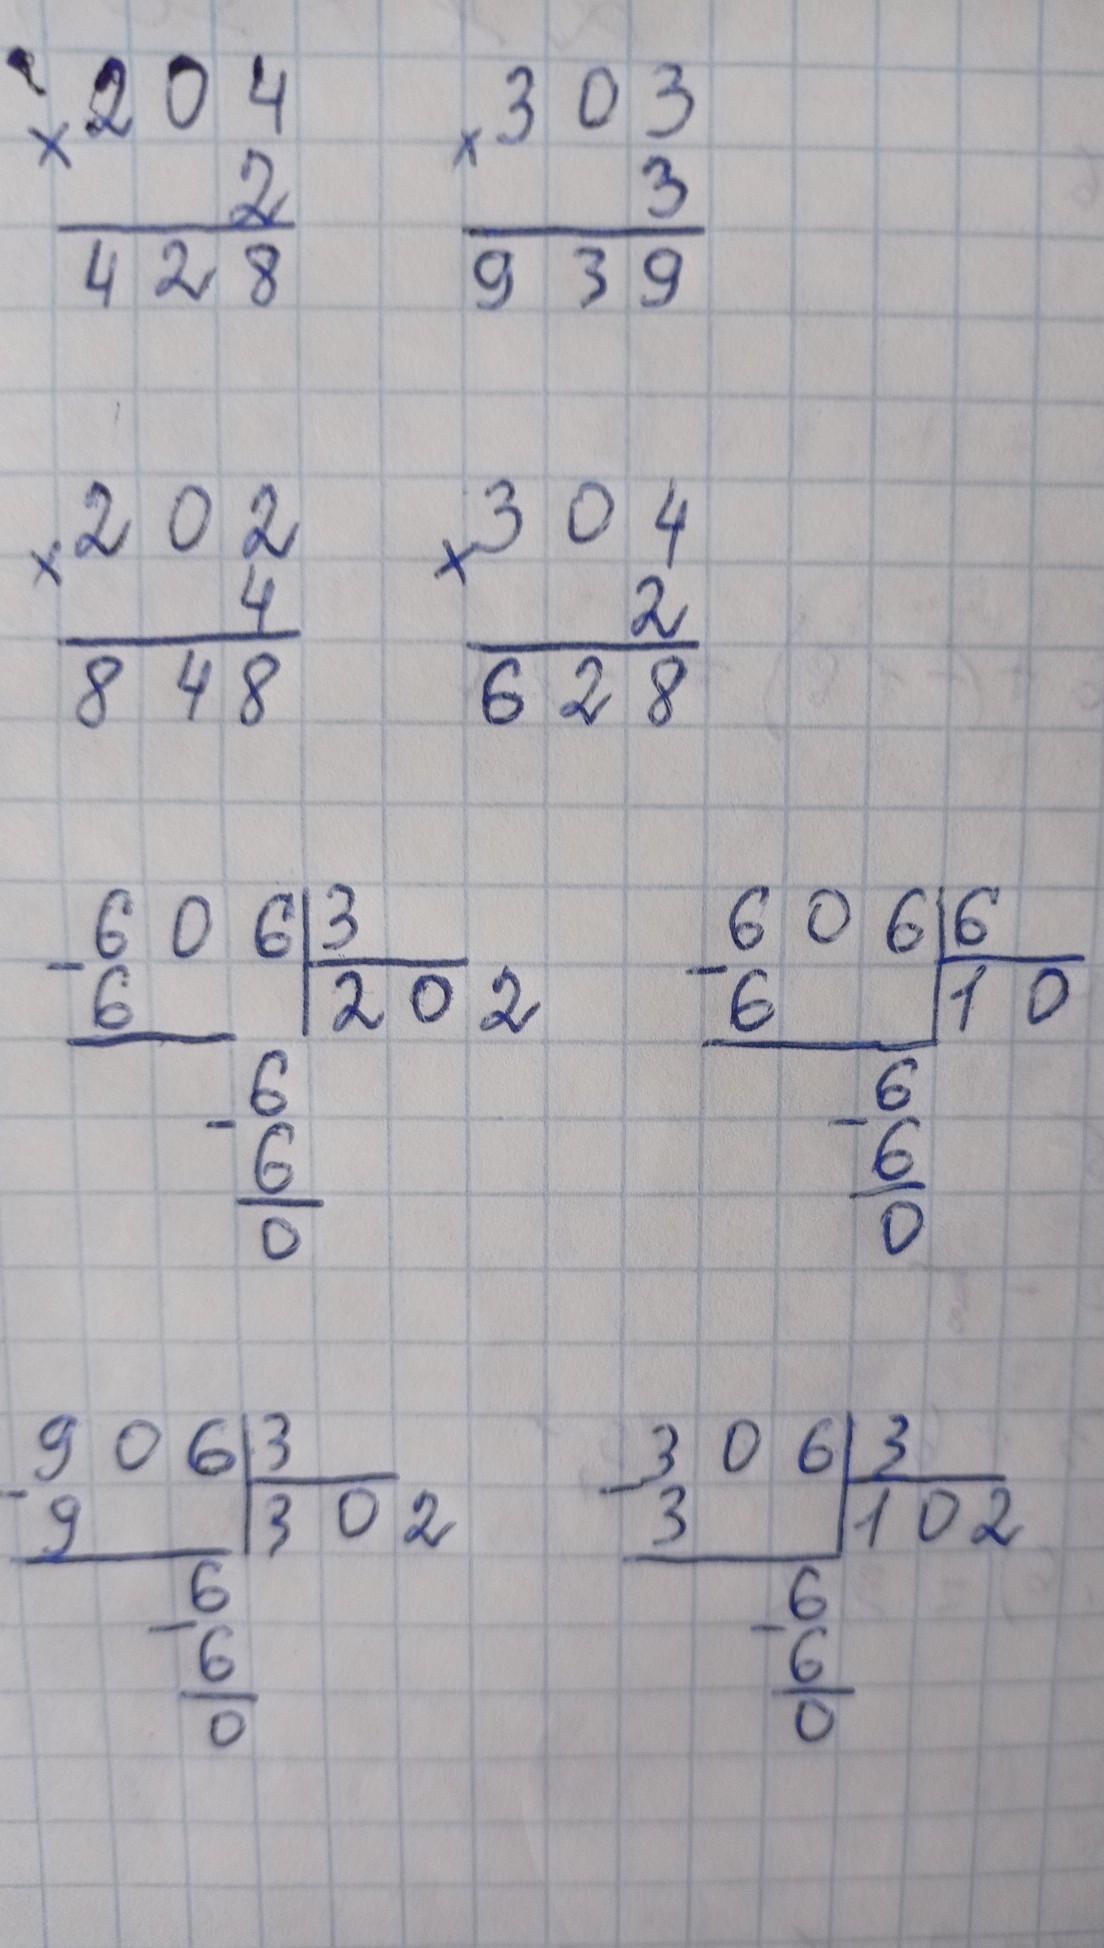 204 303
× 2 × 3
428 939
202 304
× 4 × 2
848 628
-606|3 -606|6
6 |202 6 |10
-6 -6
6 6
0 0
-906|3 -306|3
9 |302 3 |102
-6 -6
6 6
0 0